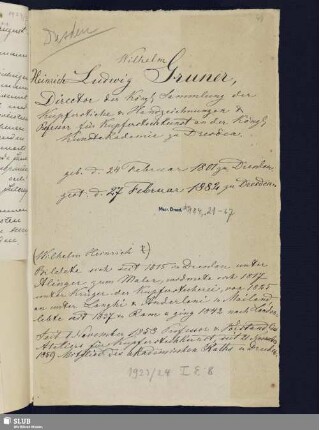 Dresden
Wilhelm
Heinrich Ludwig Gruner,
Director der Königl. Sammlung der
Kupferstiche & Handzeichnungen &
Professor für Kupferstechkunst an der Königl.
Kunstakademie zu Dresden
geb. d. 24 Februar 1801 zu Dresden
gest. d. 27 Februar 1882 zu Dresden
Mscr. Dresd.
(Wilhelm Heinrich L)
seit 1815 in Dresden unter
Klinger zum Maler, widmete sich 1817
unter Krüger der Kupferstecherei, zog 1825
unter Longhi & Anderloni in Mailand
lebte seit 1837 in Rom & ging 1842 nach London
Seit 1 November 1858 Professor & Vorstand des
Ateliers für Kupferstechkunst, seit 21
1859 Mitglied des akademischen Raths in Dresden
1933/24 I E 8
SLUB